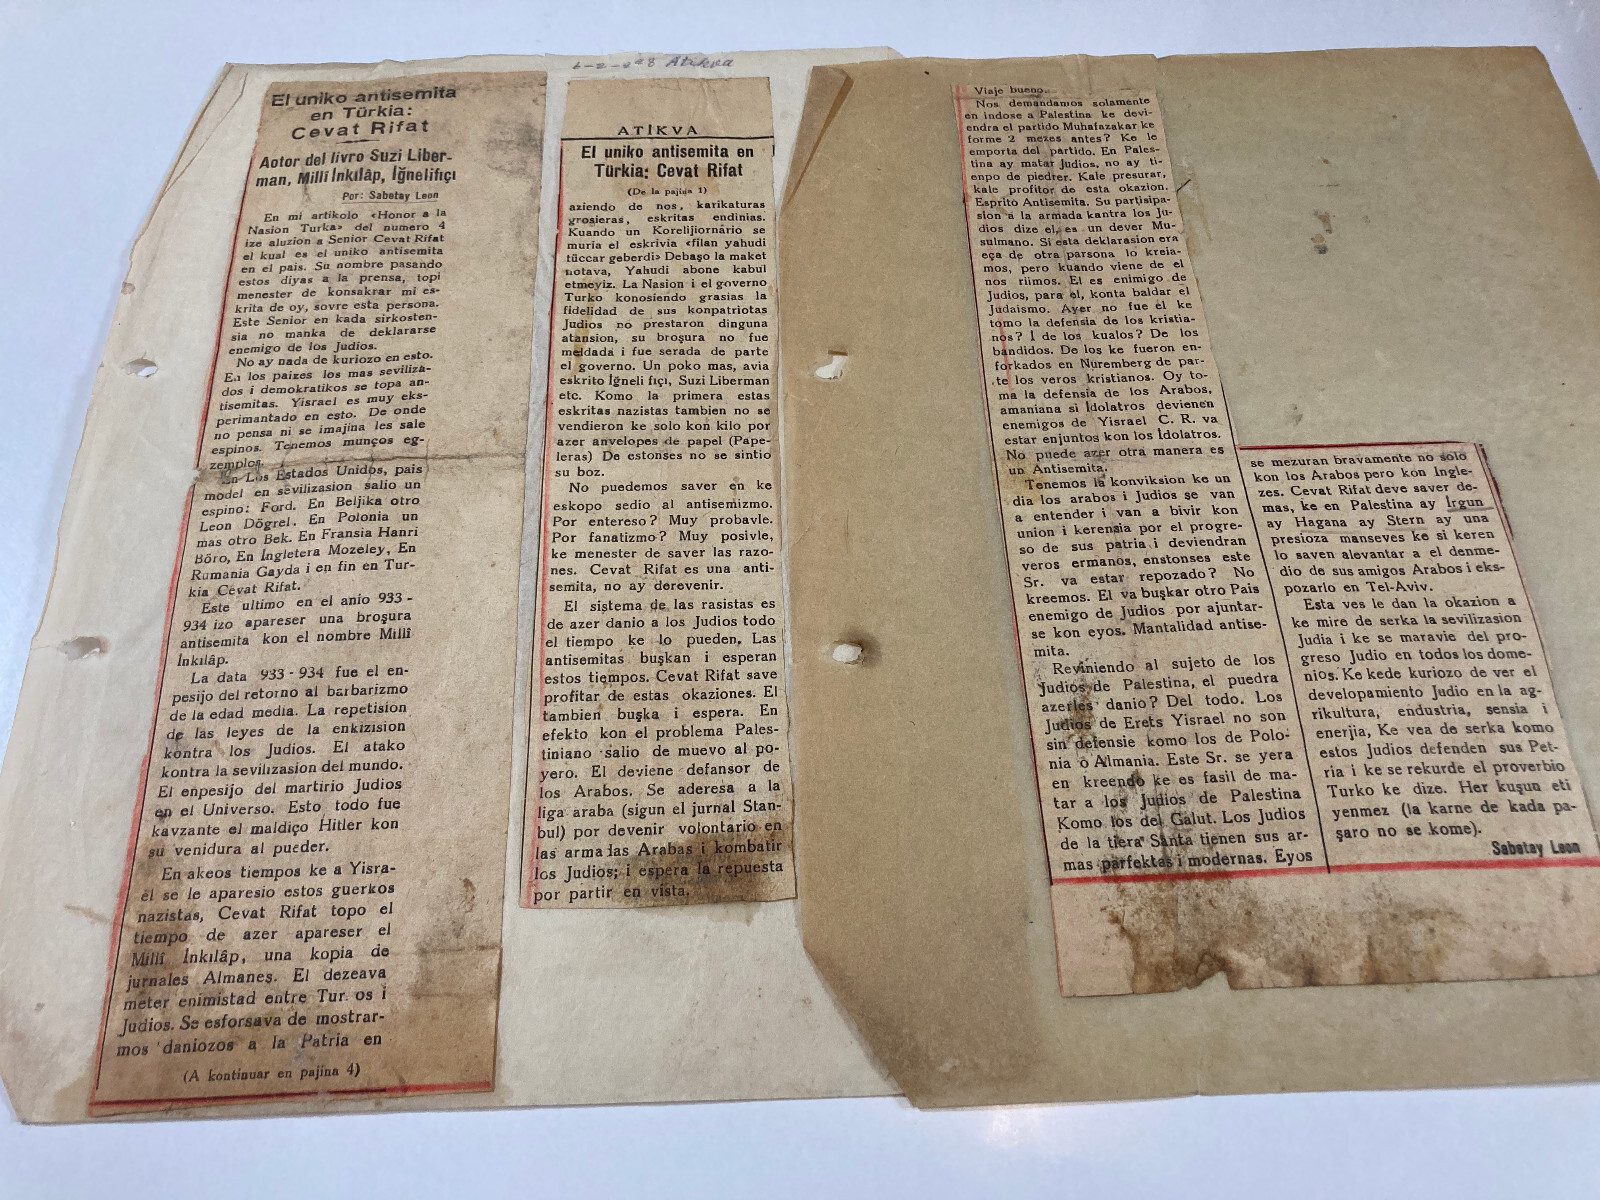 El uniko antisemita
en Türkia:
Cevat Rifat
Aotor del livro Suzi Liber-
man, Millî İnkılâp, İğnelifıçı
Por: Sabetay Leon
En mi artikolo «Honor a la
Nasion Turka» del numero 4
ize aluzion a Senior Cevat Rifat
el kual es el uniko antisemita
en el pais. Su nombre pasando
estos diyas a la prensa, topi
menester de konsakrar mi es-
krita de oy, sovre esta persona.
Este Senior en kada sirkosten-
sia no manka de deklararse
enemigo de los Judios.
No ay nada de kuriozo en esto.
En los paizes los mas seviliza-
dos i demokratikos se topa an-
tisemitas. Yisrael es muy eks-
perimantado en esto. De onde
no pensa ni se imajina les sale
espinos. Tenemos munços eg-
zemplos.
En Los Estados Unidos, pais
model en sevilizasion salio un
espino: Ford. En Beljika otro
Leon Dögrel. En Polonia un
mas otro Bek. En Fransia Hanri
Böro, En İngletera Mozeley, En
Rumania Gayda i en fin en Tur-
kia Cevat Rifat.
Este ultimo en el anio 933 -
934 izo apareser una broşura
antisemita kon el nombre Millî
İnkılâp.
La data 933-934 fue el en-
pesijo del retorno al barbarizmo
de la edad media. La repetision
de las leyes de la enkizision
kontra los Judios. El atako
kontra la sevilizasion del mundo.
El enpesijo del martirio Judios
en el Universo. Esto todo fue
kavzante el maldiço Hitler kon
su venidura al pueder.
En akeos tiempos ke a Yisra-
el se le aparesio estos guerkos
nazistas, Cevat Rifat topo el
tiempo de azer apareser el
Millî İnkılâp, una kopia de
jurnales Almanes. El dezeava
meter enimistad entre Tur os i
Judios. Se esforsava de mostrar-
mos daniozos a la Patria en
(A kontinuar en pajina 4)
Atikva
ATİKVA
El uniko antisemita en
Türkia: Cevat Rifat
(De la pajina 1)
aziendo de nos, karikaturas
grosieras, eskritas endinias.
Kuando un Korelijiornario se
muria el eskrivia «filan yahudi
tüccar geberdi» Debaşo la maket
notava, Yahudi abone kabul
etmeyiz. La Nasion i el governo
Turko konosiendo grasias la
fidelidad de sus konpatriotas
Judios no prestaron dinguna
atansion, su broşura no fue
meldada i fue serada de parte
el governo. Un poko mas, avia
eskrito İğneli fıçı, Suzi Liberman
etc. Komo la primera estas
eskritas nazistas tambien no se
vendieron ke solo kon kilo por
azer anvelopes de papel (Pape-
leras) De estonses no se sintio
su boz.
No puedemos saver en ke
eskopo sedio al antisemizmo.
Por entereso? Muy probavle.
Por fanatizmo? Muy posivle,
ke menester de saver las razo-
nes. Cevat Rifat es una anti-
semita, no ay derevenir.
El sistema de las rasistas es
de azer danio a los Judios todo
el tiempo ke lo pueden. Las
antisemitas buşkan i esperan
estos tiempos. Cevat Rifat save
profitar de estas okaziones. El
tambien buşka i espera. En
efekto kon el problema Pales-
tiniano salio de muevo al po-
yero. El deviene defansor de
los Arabos. Se aderesa a la
liga araba (sigun el jurnal Stan-
bul) por devenir volontario en
las armadas Arabas i kombatir
los Judios; i espera la repuesta
por partir en vista.
Viaje bueno.
Nos demandamos solamente
en indose a Palestina ke devi-
endra el partido Muhafazakar ke
forme 2 mezes antes? Ke le
emporta del partido. En Pales-
tina ay matar Judios, no ay ti-
enpo de piedrer. Kale presurar,
kale profitor de esta okazion.
Esprito Antisemita. Su partisipa-
sion a la armada kantra los Ju-
dios dize el, es un dever Mu-
sulmano. Si esta deklarasion era
eça de otra parsona lo kreia-
mos, pero kuando viene de el
nos riimos. El es enimigo de
Judios, para el, konta baldar el
Judaismo. Ayer no fue el ke
tomo la defensia de los kristia-
nos? I de los kualos? De los
bandidos. De los ke fueron en-
forkados en Nuremberg de par-
te los veros kristianos. Oy to-
ma la defensia de los Arabos,
amaniana si İdolatros devienen
enemigos de Yisrael C. R. va
estar enjuntos kon los İdolatros.
No puede azer otra manera es
un Antisemita.
Tenemos la konviksion ke un
dia los arabos i Judios se van
a entender i van a bivir kon
union i kerensia por el progre-
so de sus patria i deviendran
veros ermanos, enstonses este
Sr. va estar repozado? No
kreemos. El va buşkar otro Pais
enemigo de Judios por ajuntar-
se kon eyos. Mantalidad antise-
mita.
Reviniendo al sujeto de los
Judios de Palestina, el puedra
azerles danio? Del todo. Los
Judios de Erets Yisrael no son
sin defensie komo los de Polo-
nia o Almania. Este Sr. se yera
en kreendo ke es fasil de ma-
tar a los Judios de Palestina
Komo los del Galut. Los Judios
de la tiera Santa tienen sus ar-
mas parfektas i modernas. Eyos
se mezuran bravamente no solo
kon los Arabos pero kon Ingle-
zes. Cevat Rifat deve saver de-
mas, ke en Palestina ay Irgun
ay Hagana ay Stern ay una
presioza manseves ke si keren
lo saven alevantar a el denme-
dio de sus amigos Arabos i eks-
pozarlo en Tel-Aviv.
Esta ves le dan la okazion a
ke mire de serka la sevilizasion
Judia i ke se maravie del pro-
greso Judio en todos los dome-
nios. Ke kede kuriozo de ver el
developamiento Judio en la ag-
rikultura, endustria, sensia i
enerjia, Ke vea de serka komo
estos Judios defenden sus Pet-
ria i ke se rekurde el proverbio
Turko ke dize. Her kuşun eti
yenmez (la karne de kada pa-
şaro no se kome).
Sabetay Leon